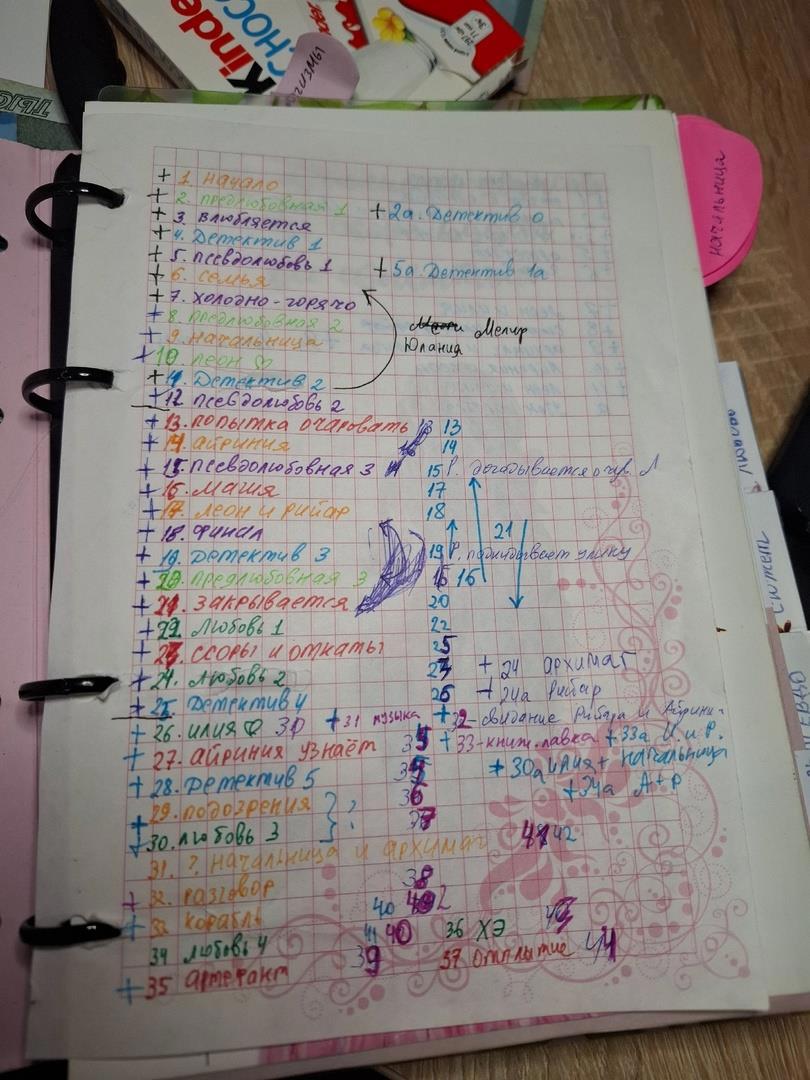 kinde
CHOCO
ТЫС
начальница
+ 1. начало
+ 2. предлюбовная 1 + 2а. Детектив 0
+ 3. влюбляется
+ 4. Детектив 1
+ 5. псевдолюбовь 1 + 5а. Детектив 1а
+ 6. семья
+ 7. холодно-горячо
+ 8. предлюбовная 2 Мелир
+ 9. начальница Юлания
+ 10. леон ♡
+ 11. Детектив 2
+ 12. псевдолюбовь 2
+ 13. попытка очаровать 13
+ 14. айриния 14
+ 15. псевдолюбовная 3 15 Р. догадывается о чув. Л
+ 16. магия 17
+ 17. леон и рийар 18
+ 18. финал 21
+ 19. Детектив 3 19 Р. подкидывает улику
+ 20. предлюбовная 3 16
+ 21. закрывается 20
+ 22. любовь 1 22
+ 23. ссоры и откаты 25
+ 24. любовь 2 + 24 архимаг
+ 25. Детектив 4 26 + 24а Рийар
+ 26. илия ♡ 30 + 31 музыка + 32-свидание Рийара и Айрини-
+ 27. айриния узнаёт 35 + 33-книж. лавка + 33а И. и Р.
+ 28. Детектив 5 + 30а илия + начальница
+ 29. подозрения 36 + 34а А+Р
+ 30. любовь 3 } ?
31. ? начальница и архимаг 42
+ 32. разговор 38
+ 33 корабль 40
34 любовь 4 41 40 36 ХЭ
+ 35 артефакт 39 37 отплытие 44
любовь
сюжет